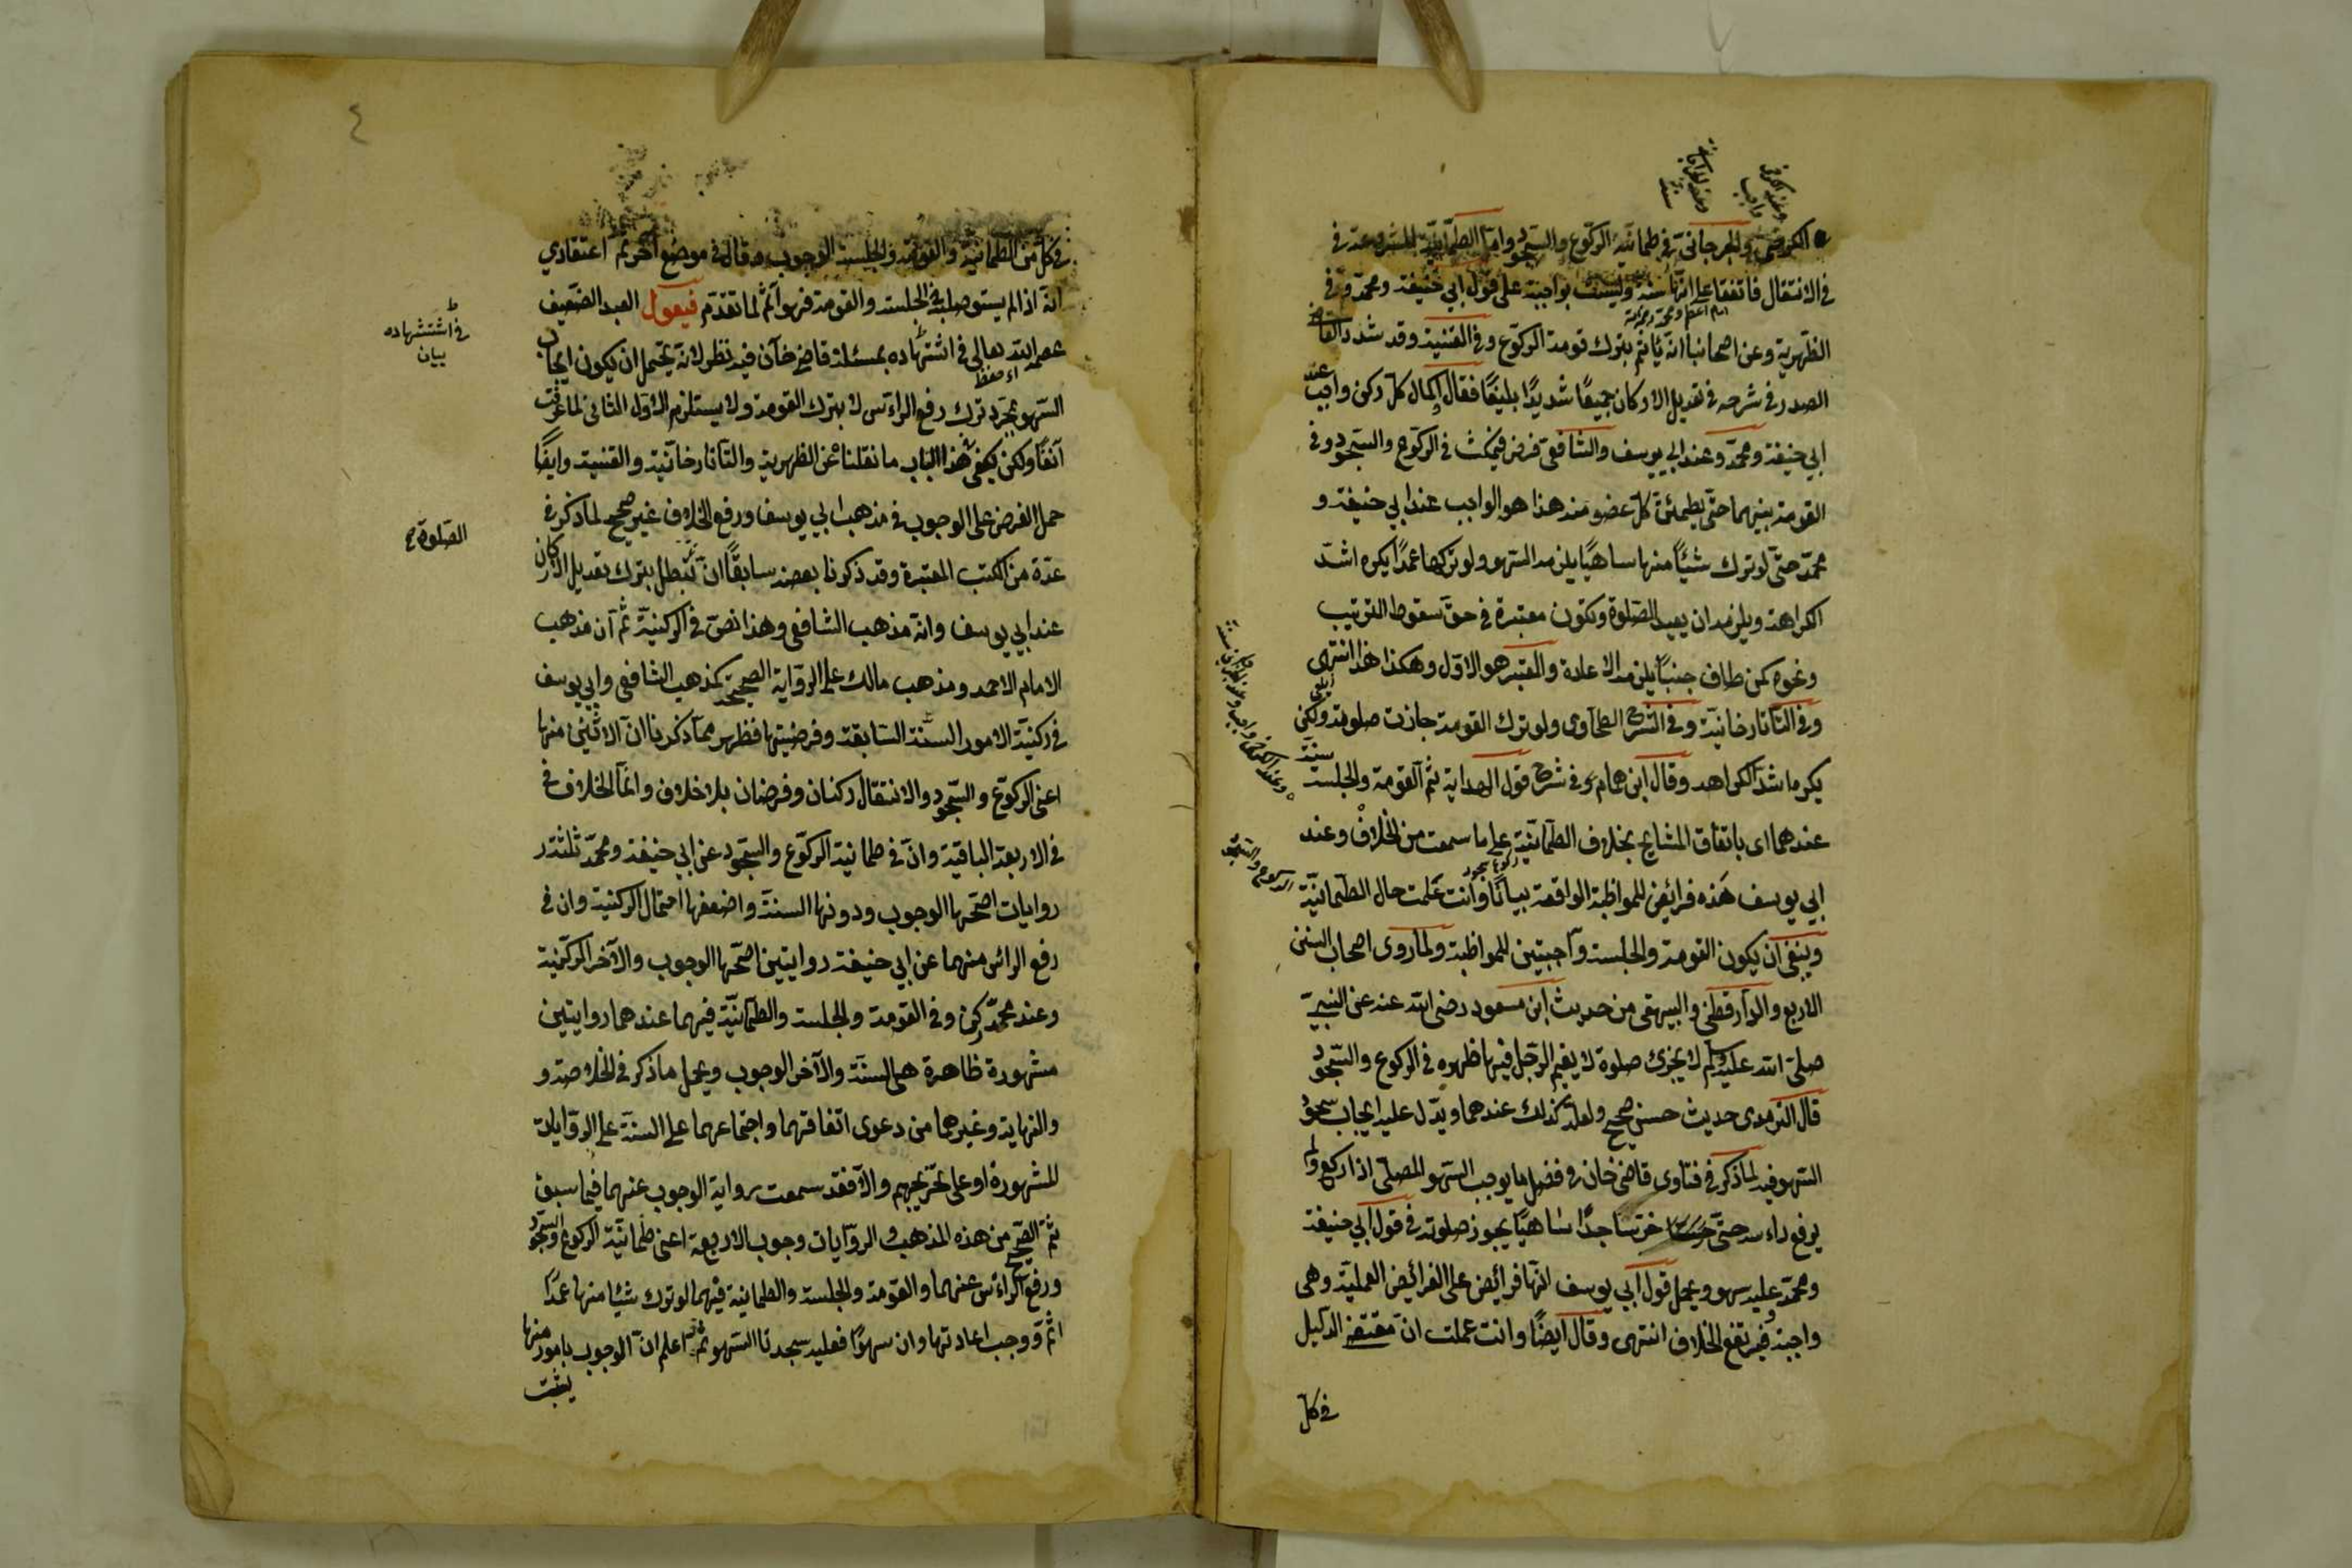 الكرخي والجرجاني في طمانية الركوع والسجود واما الطمانية المشروعة في
في الانتقال فاتفقا على انها سنة وليست بواجبة على قول ابي حنيفة ومحمد وفي
الظهيرية وعن اصحابنا انه ياثم بترك قومة الركوع وفي القنية وقد شدد القاضي
الصدر في شرحه في تعديل الاركان جميعًا شديدًا بليغًا فقال اكمال كل ركن واجب عند
ابي حنيفة ومحمد وعند ابي يوسف والشافعي فرض فيمكث في الركوع والسجود وفي
القومة بينهما حتى يطمئن كل عضو منه هذا هو الواجب عند ابي حنيفة و
محمد حتى لو ترك شيئًا منها ساهيًا يلزمه السهو ولو تركها عمدًا يكره اشد
الكراهة ويلزمه ان يعيد الصلوة وتكون معتبرة في حق سقوط الترتيب
ونحوه كمن طاف جنبًا يلزمه الاعادة والمعتبر هو الاول وهكذا هذا انتهى
وفي التاتارخانية وفي الشرح الطحاوى ولو ترك القومة جازت صلوته ولكن
يكره اشد الكراهة وقال ابن همام في شرح قول الهداية ثم القومة والجلسة سنة
عندهما اى باتفاق المشايخ بخلاف الطمانية على ما سمعت من الخلاف وعند
ابي يوسف هذه فرائض للمواظبة الواقعة بيانًا وانت علمت حال الطمانية
وينبغي ان يكون القومة والجلسة واجبتين للمواظبة ولما روى اصحاب السنن
الاربع والدارقطني والبيهقي من حديث ابن مسعود رضى الله عنه عن النبي
صلى الله عليه وسلم لا يجزئ صلوة لا يقيم الرجل فيها ظهره في الركوع والسجود
قال الترمذى حديث حسن صحيح ولعله كذلك عندهما ويدل عليه ايجاب سجود
السهو فيه لما ذكر في فتاوى قاضى خان في فصل ما يوجب السهو المصلى اذا ركع ولم
يرفع راءسه حتى خر ساجدًا ساهيًا يجوز صلوته في قول ابي حنيفة
ومحمد عليه سهو ويحمل قول ابي يوسف انها فرائض على الفرائض العملية وهى
واجبة فيرتفع الخلاف انتهى وقال ايضًا وانت علمت ان مقتضى الدليل
في كل
٤
في كل من الطمانية والقومة والجلسة الوجوب وقال في موضع آخر ثم اعتقادي
انه اذا لم يستو صلبه في الجلسة والقومة فهو آثم لما تقدم فيقول العبد الضعيف
عصمه الله تعالى في استشهاده بمسئلة قاضى خان فيه نظر لانه يحتمل ان يكون ايجاب
السهو بمجرد ترك رفع الراءس لا بترك القومة ولا يستلزم الاول الثاني لما عرفت
آنفًا ولكن يكفى هذا الباب ما نقلناه عن الظهيرية والتاتارخانية والقنية وايضًا
حمل الفرض على الوجوب في مذهب ابي يوسف ورفع الخلاف غير صحيح لما ذكر في
عدة من الكتب المعتبرة وقد ذكرنا بعضه سابقًا ان تبطل بترك تعديل الاركان
عند ابي يوسف وانه مذهب الشافعي وهذا نص في الركنية ثم ان مذهب
الامام الاحمد ومذهب مالك على الرواية الصحيحة كمذهب الشافعي وابي يوسف
في ركنية الامور الستة السابقة وفرضيتها فظهر مما ذكرنا ان الاثنين منها
اعنى الركوع والسجود والانتقال ركنان وفرضان بلا خلاف وانما الخلاف في
في الاربعة الباقية وان في طمانية الركوع والسجود عن ابي حنيفة ومحمد ثلثة
روايات اصحها الوجوب ودونها السنة واضعفها احتمال الركنية وان في
رفع الرائس منهما عن ابي حنيفة روايتين اصحها الوجوب والآخر الركنية
وعند محمد ركن وفي القومة والجلسة والطمانية فيهما عندهما روايتين
مشهورة ظاهرة هى السنة والآخر الوجوب ويحمل ما ذكر في الخلاصة و
والنهاية وغيرهما من دعوى اتفاقهما واجتماعهما على السنة على الروايات
المشهورة او على تخريجهم والا فقد سمعت رواية الوجوب عنهما فيما سبق
ثم الصحيح من هذه المذهب والروايات وجوب الاربعة اعنى طمانية الركوع والسجود
ورفع الراءس عنهما والقومة والجلسة والطمانية فيهما لو ترك شيئا منها عمدًا
اثم ووجب اعادتها وان سهوًا فعليه سجدتا السهو ثم اعلم ان الوجوب بامور منها
يثبت
في استشهاده
بيان
الصلوة